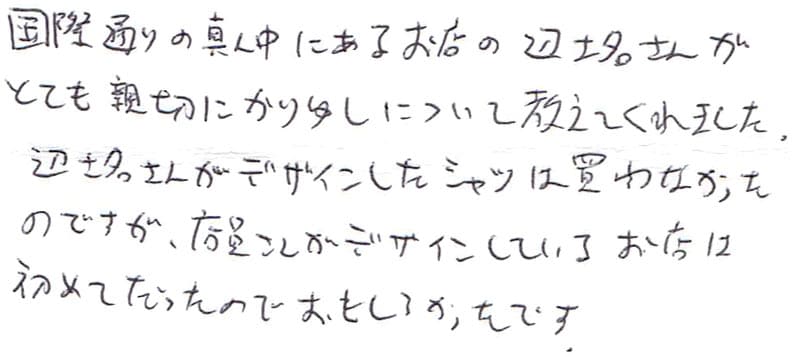 国際通りの真ん中にあるお店の辺土名さんが
とても親切にかりゆしについて教えてくれました。
辺土名さんがデザインしたシャツは買わなかった
のですが、店員さんがデザインしているお店は
初めてだったのでおもしろかったです。